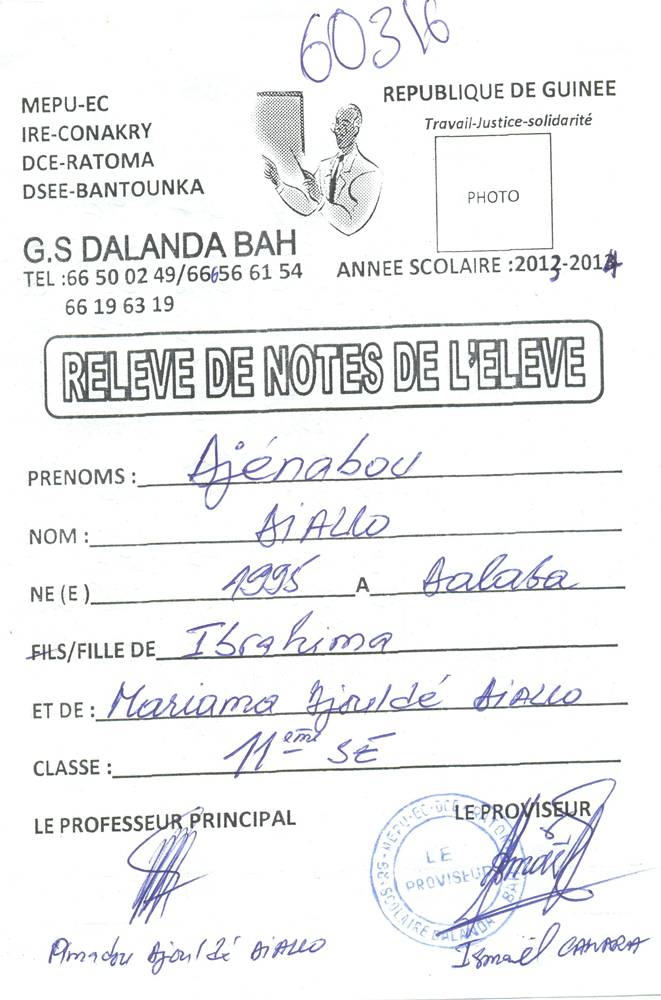 60316
MEPU-EC
IRE-CONAKRY
DCE-RATOMA
DSEE-BANTOUNKA
REPUBLIQUE DE GUINEE
Travail-Justice-solidarité
PHOTO
G.S DALANDA BAH
TEL :66 50 02 49/66656 61 54
66 19 63 19
ANNEE SCOLAIRE :2013-2014
RELEVE DE NOTES DE L'ELEVE
PRENOMS : Djénabou
NOM : DiALLO
NE (E ) 1995 A Dalaba
FILS/FILLE DE Ibrahima
ET DE : Mariama Djouldé DiALLO
CLASSE : 11ème SE
LE PROFESSEUR PRINCIPAL
LE PROVISEUR
LE
PROVISEUR
Amadou Djouldé DiALLO
Ismaël CAMARA